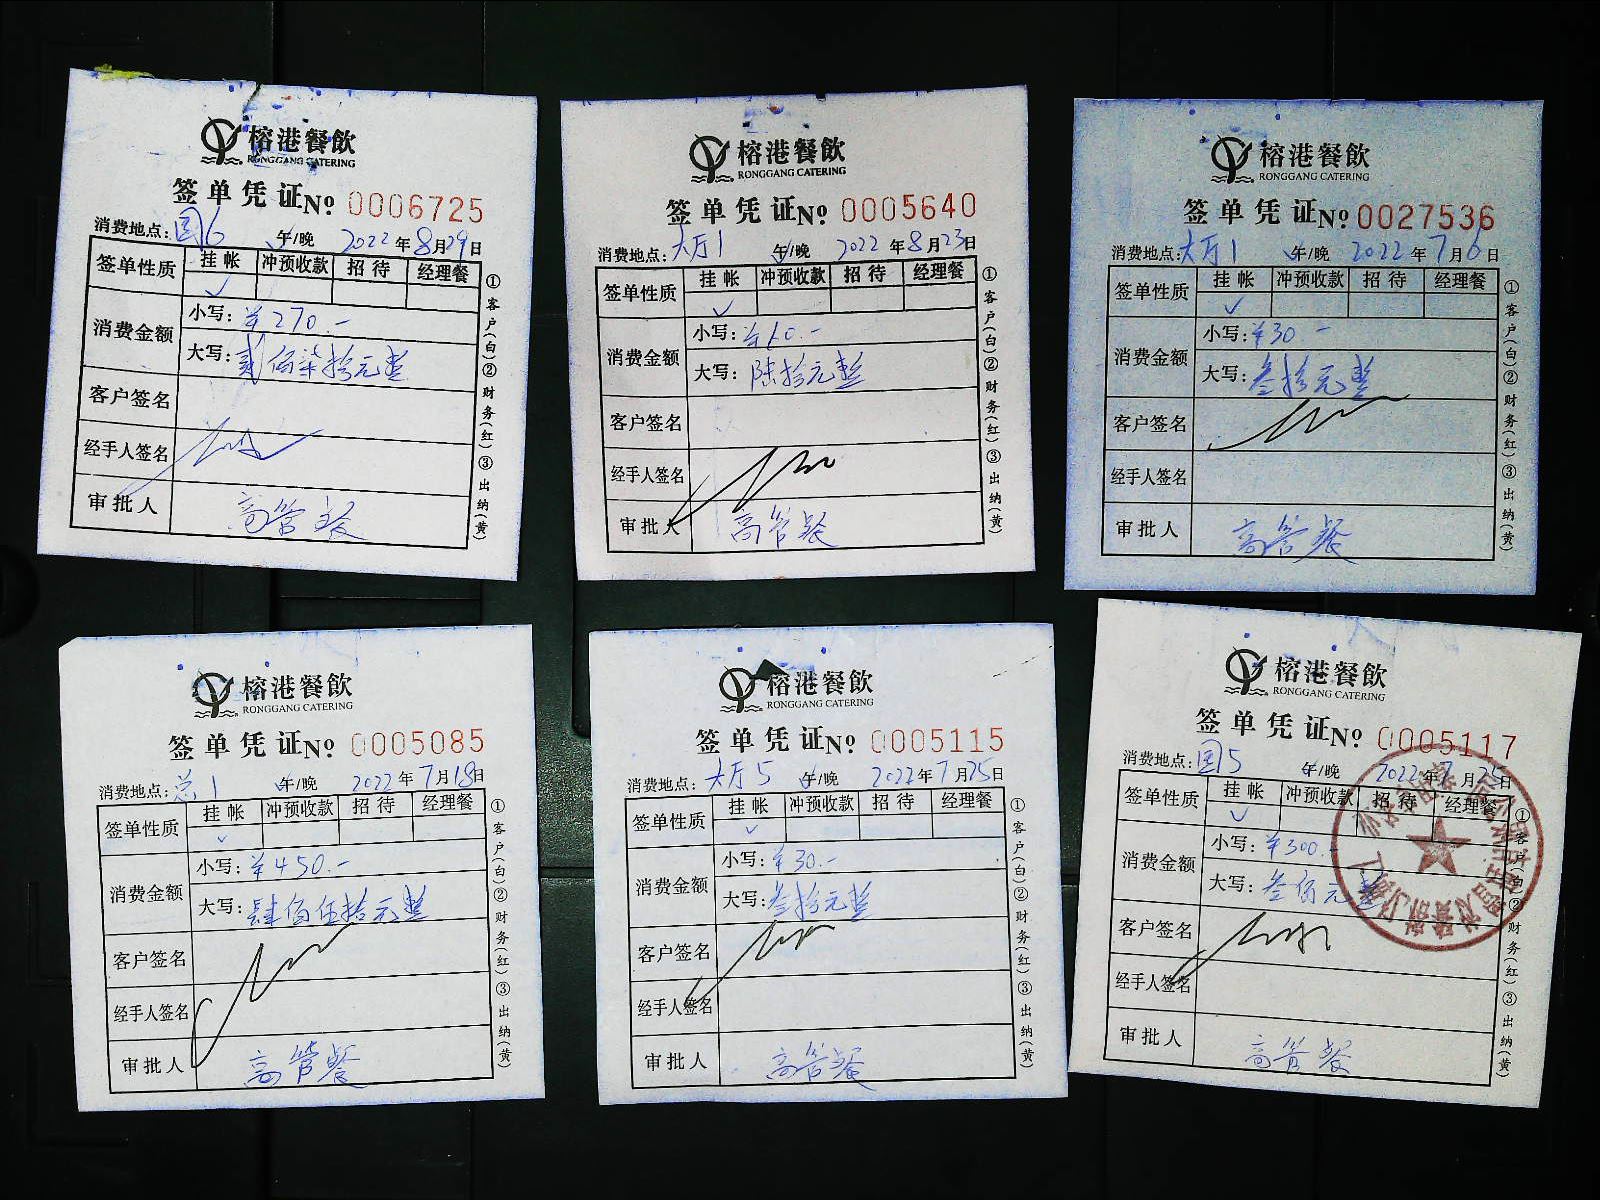 榕港餐飲
RONGGANG CATERING
签单凭证№ 0006725
消费地点: 国6 午/晚 2022年8月29日
签单性质 挂帐 冲预收款 招待 经理餐
✓
消费金额 小写: ¥270.-
大写: 贰佰柒拾元整
客户签名
经手人签名
审批人 高管餐
①客户(白)②财务(红)③出纳(黄)
榕港餐飲
RONGGANG CATERING
签单凭证№ 0005640
消费地点: 大厅1 午/晚 2022年8月23日
签单性质 挂帐 冲预收款 招待 经理餐
✓
消费金额 小写: ¥60.-
大写: 陆拾元整
客户签名
经手人签名
审批人 高管餐
①客户(白)②财务(红)③出纳(黄)
榕港餐飲
RONGGANG CATERING
签单凭证№ 0027536
消费地点: 大厅1 午/晚 2022年7月6日
签单性质 挂帐 冲预收款 招待 经理餐
✓
消费金额 小写: ¥30-
大写: 叁拾元整
客户签名
经手人签名
审批人 高管餐
①客户(白)②财务(红)③出纳(黄)
榕港餐飲
RONGGANG CATERING
签单凭证№ 0005085
消费地点: 总1 午/晚 2022年7月18日
签单性质 挂帐 冲预收款 招待 经理餐
✓
消费金额 小写: ¥450.-
大写: 肆佰伍拾元整
客户签名
经手人签名
审批人 高管餐
①客户(白)②财务(红)③出纳(黄)
榕港餐飲
RONGGANG CATERING
签单凭证№ 0005115
消费地点: 大厅5 午/晚 2022年7月25日
签单性质 挂帐 冲预收款 招待 经理餐
✓
消费金额 小写: ¥30.-
大写: 叁拾元整
客户签名
经手人签名
审批人 高管餐
①客户(白)②财务(红)③出纳(黄)
榕港餐飲
RONGGANG CATERING
签单凭证№ 0005117
消费地点: 国5 午/晚 2022年7月25日
签单性质 挂帐 冲预收款 招待 经理餐
✓
消费金额 小写: ¥300.-
大写: 叁佰元整
客户签名
经手人签名
审批人 高管餐
①客户(白)②财务(红)③出纳(黄)